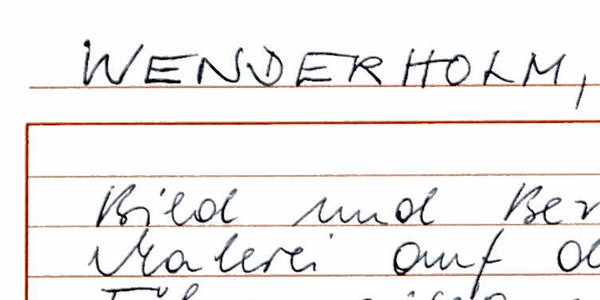 WENDERHOLM,
Bild und Ber
Malerei auf d